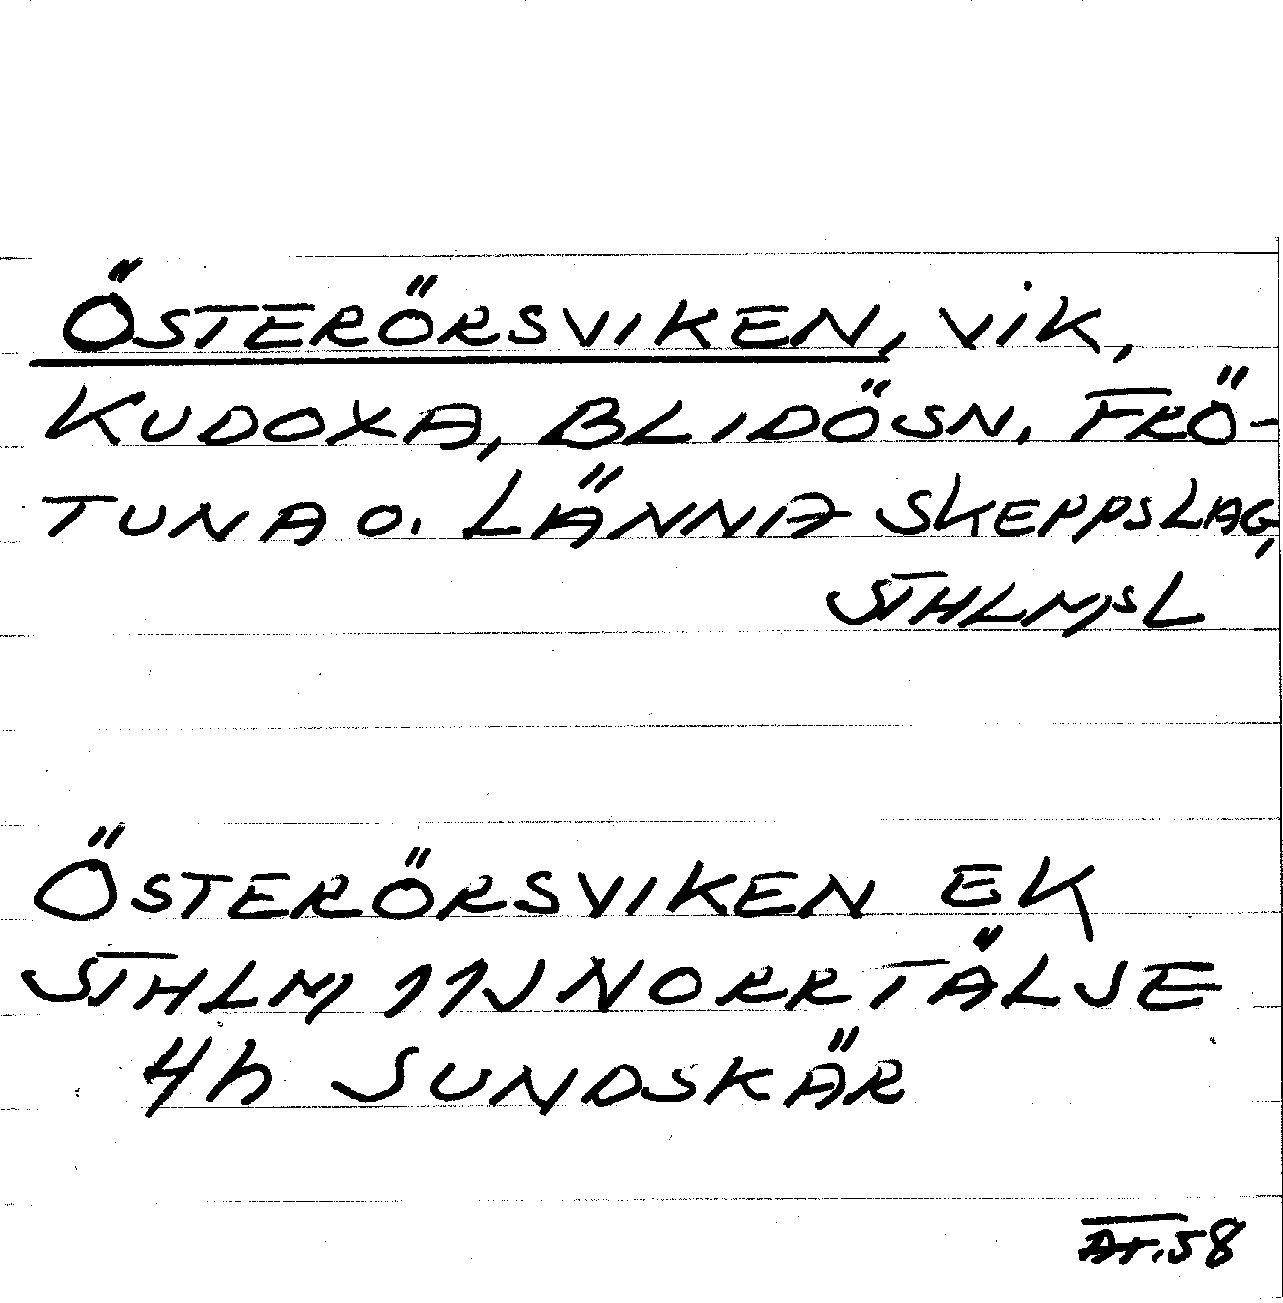 ÖSTERÖRSVIKEN, VIK,
KUDOXA, BLIDÖSN, FRÖ-
TUNA O. LÄNNA SKEPPSLAG,
STHLMSL
ÖSTERÖRSVIKEN EK
STHLM 11J NORRTÄLJE
4h SUNDSKÄR
AT.58